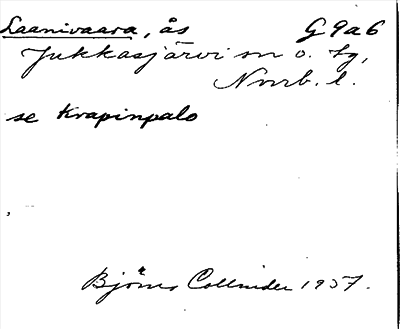 Laanivaara, ås G9a6
Jukkasjärvi sn o. tg,
Norrb. l.
se Krapinpalo
Björn Collinder 1957.